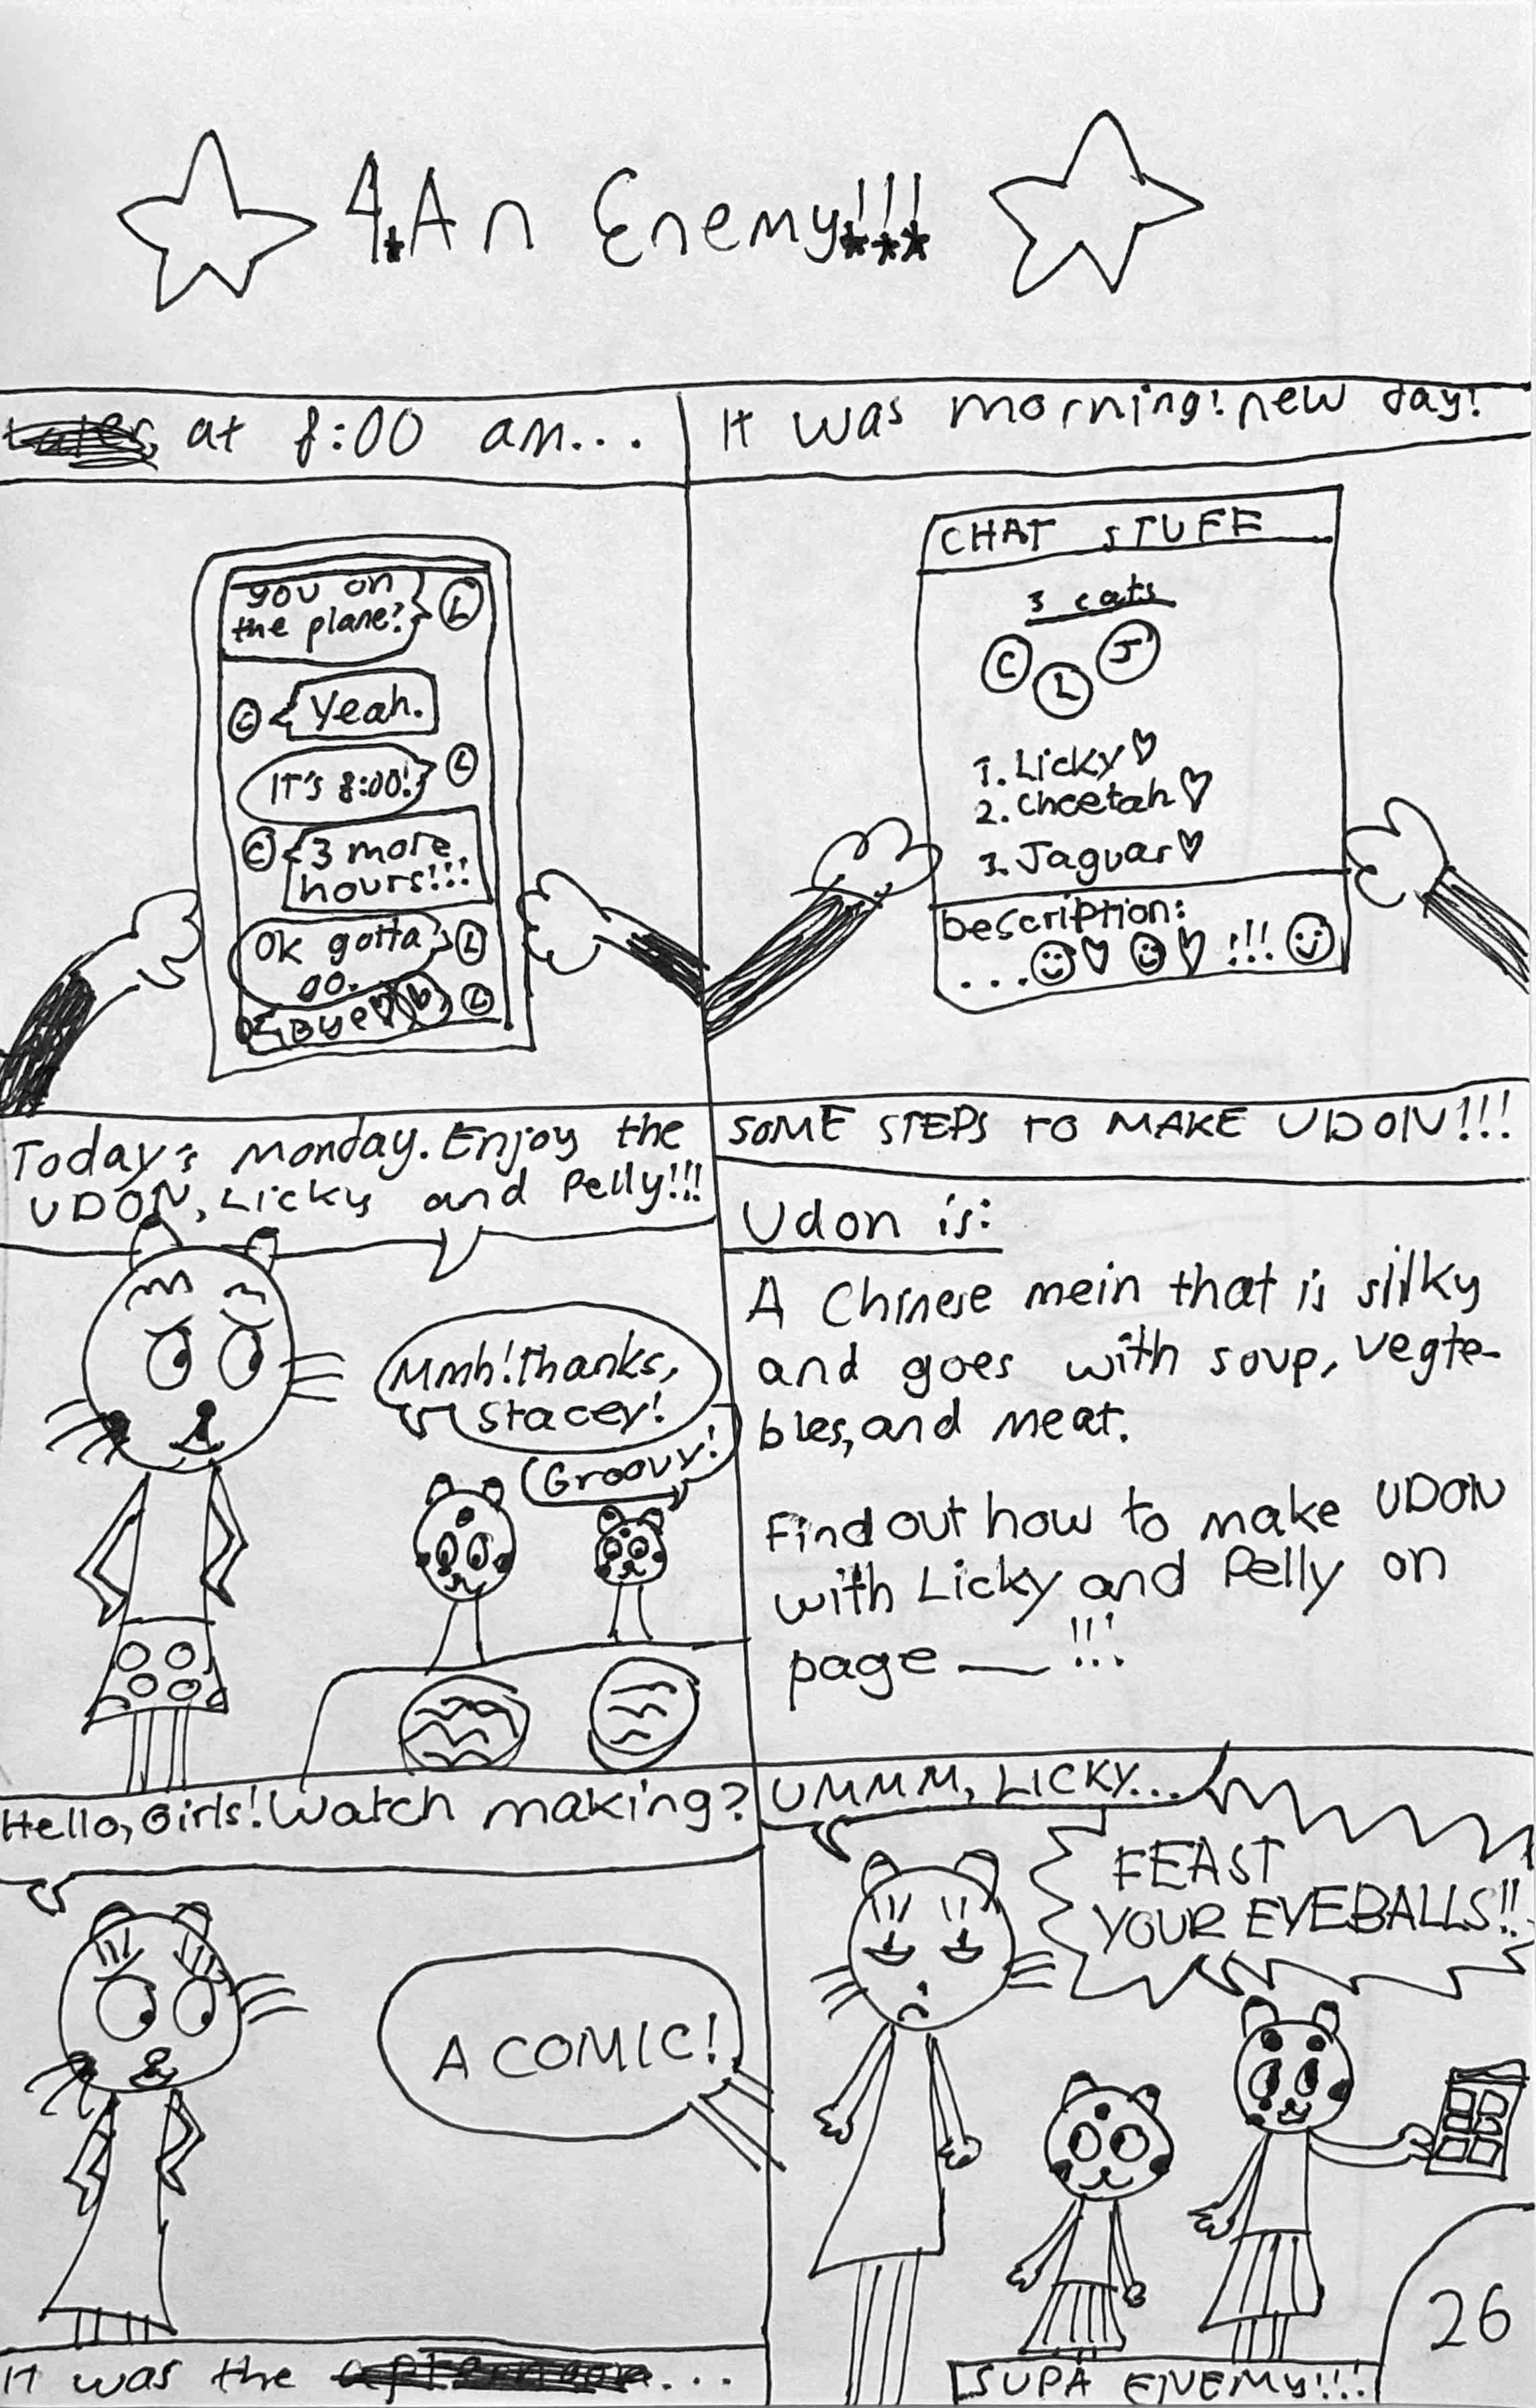 4. An Enemy!!!
at 8:00 am...
you on
the plane?
L
C
Yeah.
IT's 8:00!
L
C
3 more
hours!!!
Ok gotta
go.
L
Bye
L
It was morning! new day!
CHAT STUFF
3 cats
C
L
J
1. Licky♡
2. Cheetah♡
3. Jaguar♡
Description:
...☺♡☺♡!!!☺
Today's monday. Enjoy the
UDON, Licky and Pelly!!!
Mmh! Thanks,
Stacey!
Groovy!
SOME STEPS TO MAKE UDON!!!
Udon is:
A Chinese mein that is silky
and goes with soup, vegte-
bles, and meat.
Find out how to make UDON
with Licky and Pelly on
page __!!!
Hello, Girls! Watch making?
A COMIC!
It was the ...
UMMM, LICKY...
FEAST
YOUR EYEBALLS!!
SUPA ENEMY!!!
26